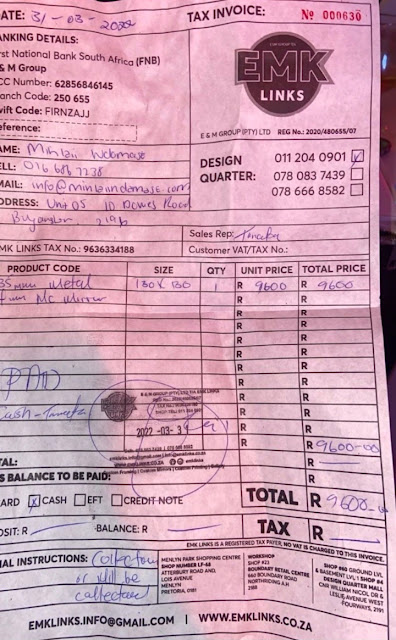 DATE: 31-03-2022 TAX INVOICE: No 000630
BANKING DETAILS:
rst National Bank South Africa (FNB)
& M Group
CC Number: 62856846145
anch Code: 250 655
wift Code: FIRNZAJJ
eference:
EMK
LINKS
E & M GROUP (PTY) LTD REG No.: 2020/480655/07
DESIGN QUARTER:
011 204 0901
078 083 7439
078 666 8582
NAME:
ELL: 016 686 7738
MAIL:
DDRESS: Unit 05 10 Dawes Road
2196
Sales Rep:
EMK LINKS TAX No.: 9636334188 Customer VAT/TAX No.:
PRODUCT CODE SIZE QTY UNIT PRICE TOTAL PRICE
35mm Metal 130 x 130 1 R 9600 R 9600
mm Mirror R R
R R
R R
R R
R R
PAID R R
Cash - R R
E & M GROUP (PTY) LTD T/A EMK LINKS
2022 -03- 3
R R
R R 9600-00
TAL: R
S BALANCE TO BE PAID: R
ARD X CASH EFT CREDIT NOTE TOTAL R 9600
OSIT: R -BALANCE: R TAX R
EMK LINKS IS A REGISTERED TAX PAYER, NO VAT IS CHARGED TO THIS INVOICE.
IAL INSTRUCTIONS: Collection
or will be
collected
MENLYN PARK SHOPPING CENTRE
SHOP NUMBER LF-68
ATTERBURY ROAD AND,
LOIS AVENUE
MENLYN
PRETORIA, 0181
WORKSHOP
SHOP #23
BOUNDARY RETAIL CENTRE
960 BOUNDARY ROAD
NORTHRIDING A.H
2188
SHOP #60 GROUND LVL
& BASEMENT LVL 1 SHOP #4
DESIGN QUARTER MALL
CNR WILLIAM NICOL DR &
LESLIE AVENUE WEST
FOURWAYS, 2191
EMKLINKS.INFO@GMAIL.COM | WWW.EMKLINKS.CO.ZA